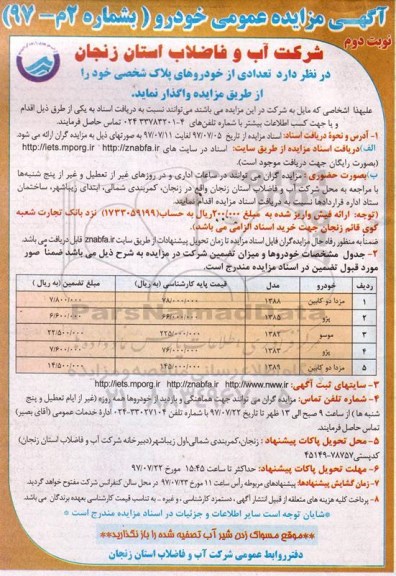 آگهـی مزایده عمومی خودرو ( بشماره ۲م-۹۷)
نوبت دوم
شرکت آب و فاضلاب استان زنجان
در نظر دارد تعدادی از خودروهای پلاک شخصی خود را
از طریق مزایده واگذار نماید.
علیهذا اشخاصی که مایل به شرکت در این مزایده می باشند می‌توانند نسبت به دریافت اسناد به یکی از طرق ذیل اقدام
و یا جهت کسب اطلاعات بیشتر با شماره تلفن‌های ۴-۳۳۷۸۳۲۰۱ ۰۲۴ تماس حاصل فرمایند.
۱- آدرس و نحوۀ دریافت اسناد: اسناد مزایده از تاریخ ۹۷/۰۷/۰۵ لغایت ۹۷/۰۷/۱۱ به صورتهای ذیل به مزایده گران ارائه می شود.
الف)دریافت اسناد مزایده از طریق سایت: اسناد در سایت های http://znabfa.ir ؛ http://iets.mporg.ir
(بصورت رایگان جهت دریافت موجود است).
ب)بصورت حضوری : مزایده گران می توانند در ساعات اداری و در روزهای غیر از تعطیل و غیر از پنج شنبه‌ها
با مراجعه به محل شرکت آب و فاضلاب استان زنجان واقع در زنجان، کمربندی شمالی، ابتدای زیباشهر، ساختمان
ستاد اداره قراردادها نسبت به دریافت اسناد مزایده اقدام نمایند.
(توجه: ارائه فیش واریز شده به مبلغ ۲۰۰/۰۰۰ریال به حساب(۱۷۳۳۰۵۹۱۹۹) نزد بانک تجارت شعبه
کوی قائم زنجان جهت خرید اسناد الزامی می باشد).
ضمناً به منظور رفاه حال مزایده گران فایل اسناد مزایده تا زمان تحویل پیشنهادات از طریق سایت znabfa.ir قابل دریافت می باشد.
۲- جدول مشخصات خودروها و میزان تضمین شرکت در مزایده به شرح ذیل می باشد ضمناً صور
مورد قبول تضمین در اسناد مزایده مندرج است.
ردیف خودرو مدل قیمت پایه کارشناسی (به ریال) مبلغ تضمین (به ریال)
۱ مزدا دو کابین ۱۳۸۸ ۷۸/۰۰۰/۰۰۰ ۷/۸۰۰/۰۰۰
۲ پژو ۱۳۸۵ ۶۶/۰۰۰/۰۰۰ ۶/۶۰۰/۰۰۰
۳ موسو ۱۳۸۳ ۲۲۵/۰۰۰/۰۰۰ ۲۲/۵۰۰/۰۰۰
۴ پژو ۱۳۸۳ ۷۶/۰۰۰/۰۰۰ ۷/۶۰۰/۰۰۰
۵ مزدا دو کابین ۱۳۸۹ ۱۴۵/۰۰۰/۰۰۰ ۱۴/۵۰۰/۰۰۰
۳- سایتهای ثبت آگهی: http://www.nww.ir http://znabfa.ir http://iets.mporg.ir
۴- شماره تلفن تماس: مزایده گران می توانند جهت هماهنگی و بازدید از خودروها همه روزه (غیر از ایام تعطیل و پنج
شنبه ها ) از ساعت ۹ صبح الی ۱۳ ظهر تا تاریخ ۹۷/۰۷/۲۲ با شماره تلفن ۳۳۰۲۷۱۰۴-۰۲۴ ادارۀ خدمات عمومی (آقای بصیر)
تماس حاصل فرمایند.
۵- محل تحویل پاکات پیشنهاد : زنجان،کمربندی شمالی،اول زیباشهر(دبیرخانه شرکت آب و فاضلاب استان زنجان)
کدپستی ۷۸۷۵۷-۴۵۱۴۹
۶- مهلت تحویل پاکات پیشنهاد: حداکثر تا ساعت ۱۵:۴۵ مورخ ۹۷/۰۷/۲۲
۷- زمان گشایش پیشنهادها: پیشنهادهای مربوطه رأس ساعت ۱۱ مورخ ۹۷/۰۷/۲۳ در محل سالن کنفرانس شرکت مفتوح خواهد گردید.
۸- پرداخت کلیه هزینه های متعلقه از قبیل انتشار آگهی ، دستمزد کارشناسی ، و غیره ... به تناسب قیمت کارشناسی بعهده برندگان می باشد.
*شایان توجه است سایر اطلاعات و جزئیات در اسناد مزایده مندرج است *
**موقع مسواک زدن شیر آب تصفیه شده را باز نگذارید**
دفترروابط عمومی شرکت آب و فاضلاب استان زنجان
ParsNamadData